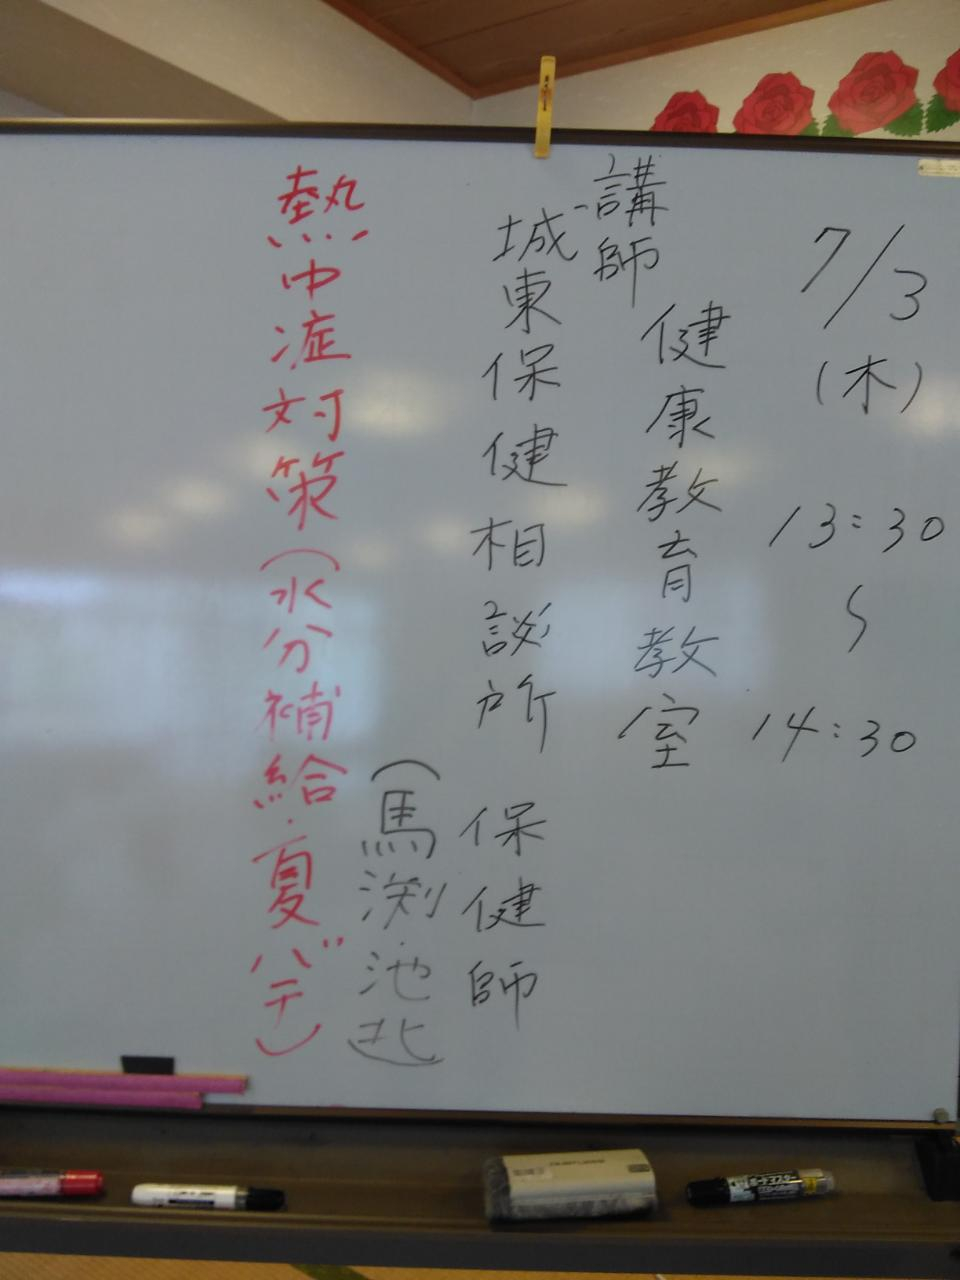 7/3
(木)
13:30
〜
14:30
健康教育教室
講師
城東保健相談所 保健師
(馬渕・池
熱中症対策(水分補給・夏バテ)